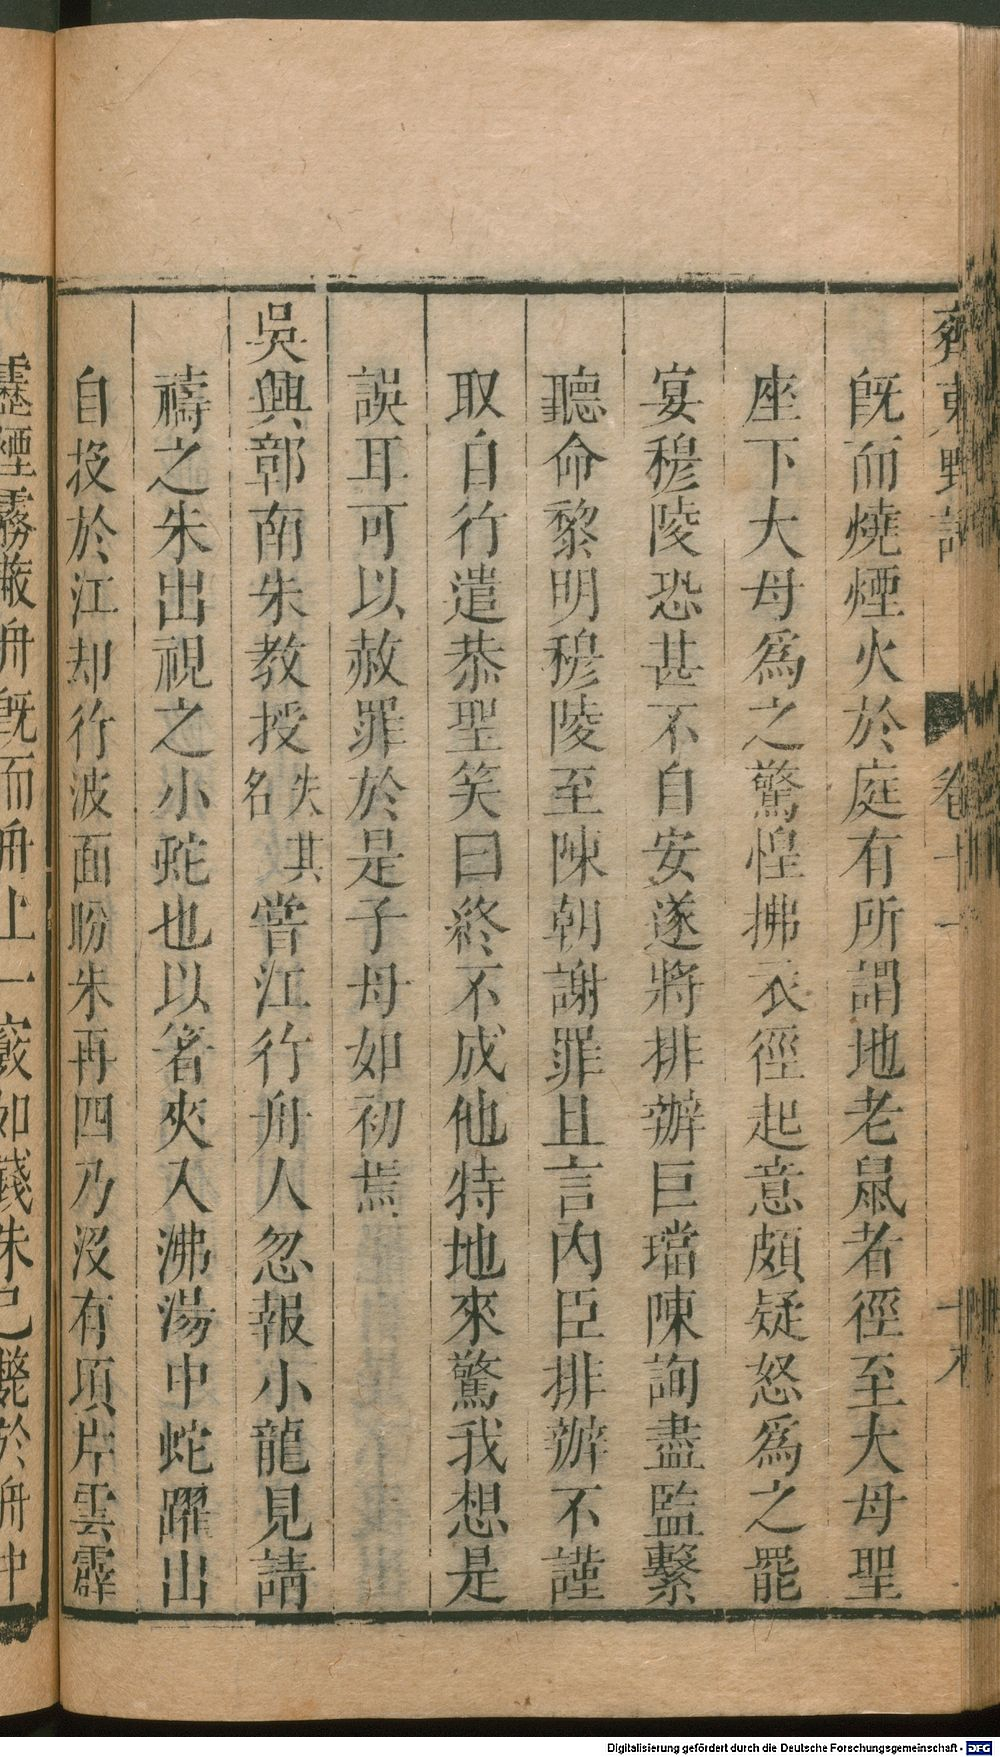 齊東野語 卷十一 十九
旣而燒煙火於庭有所謂地老鼠者徑至大母聖
座下大母爲之驚惶拂衣徑起意頗疑怒爲之罷
宴穆陵恐甚不自安遂將排辦巨璫陳詢盡監繫
聽命黎明穆陵至陳朝謝罪且言內臣排辦不謹
取自行遣恭聖笑曰終不成他特地來驚我想是
誤耳可以赦罪於是子母如初焉
吳興郭南朱教授失其名嘗江行舟人忽報小龍見請
禱之朱出視之小蛇也以箸夾入沸湯中蛇躍出
自投於江却行波面盼朱再四乃沒有頃片雲霹
靂煙霧蔽舟旣而舟上一竅如錢朱已斃於舟中
Digitalisierung gefördert durch die Deutsche Forschungsgemeinschaft - DFG